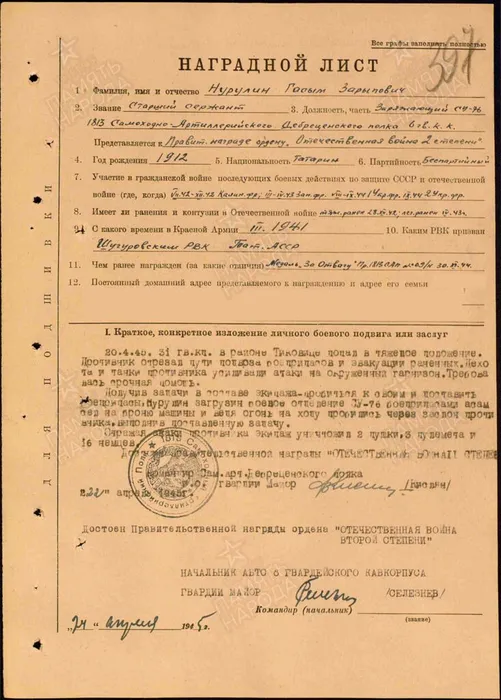 Все графы заполнять полностью
397
НАГРАДНОЙ ЛИСТ
1 Фамилия, имя и отчество Нурулин Гасым Зарипович
2. Звание Старший сержант 3. Должность, часть Заряжающий СУ-76
1813 Самоходно-Артиллерийского Дебреценского полка 6 гв. к. к.
Представляется к Правит. награде ордену „Отечественная война 2 степени"
4 Год рождения 1912 5. Национальность Татарин 6. Партийность Беспартийный
7. Участие в гражданской войне последующих боевых действиях по защите СССР и отечественной
войне (где, когда)
8. Имеет ли ранения и контузии в Отечественной войне
9. С какого времени в Красной Армии III. 1941 10. Каким РВК призван
Шугуровским РВК Тат. АССР
11. Чем ранее награжден (за какие отличия) Медаль „За Отвагу"
12. Постоянный домашний адрес представляемого к награждению и адрес его семьи
I. Краткое, конкретное изложение личного боевого подвига или заслуг
20.4.45. 31 гв.кп. в районе Тиковице попал в тяжелое положение.
Противник отрезал пути подвоза боеприпасов и эвакуации раненных. Пехо
та и танки противника усиливали атаки на окруженный гарнизон. Требова
лась срочная помощь.
Получив задачи в составе экипажа-пробиться к своим и доставить
боеприпасы. Нурулин загрузил боевое отделение СУ-76 боеприпасами
сел на броню машины и ведя огонь на ходу пробились через заслон проти
вника, выполнив поставленную задачу.
Отражая атаки противника экипаж уничтожил 2 пушки, 3 пулемета и
16 немцев.
Достоин правительственной награды "ОТЕЧЕСТВЕННАЯ ВОЙНА II СТЕПЕНИ
Командир Сам.арт. Дебреценского полка
гвардии Майор
"22" апреля 1945г.
Достоин Правительственной награды ордена "ОТЕЧЕСТВЕННАЯ ВОЙНА
ВТОРОЙ СТЕПЕНИ"
НАЧАЛЬНИК АВТО 6 ГВАРДЕЙСКОГО КАВКОРПУСА
ГВАРДИИ МАЙОР /СЕЛЕЗНЕВ/
Командир (начальник)
(звание)
„24" апреля 1945г.
ДЛЯ ПОДШИВКИ